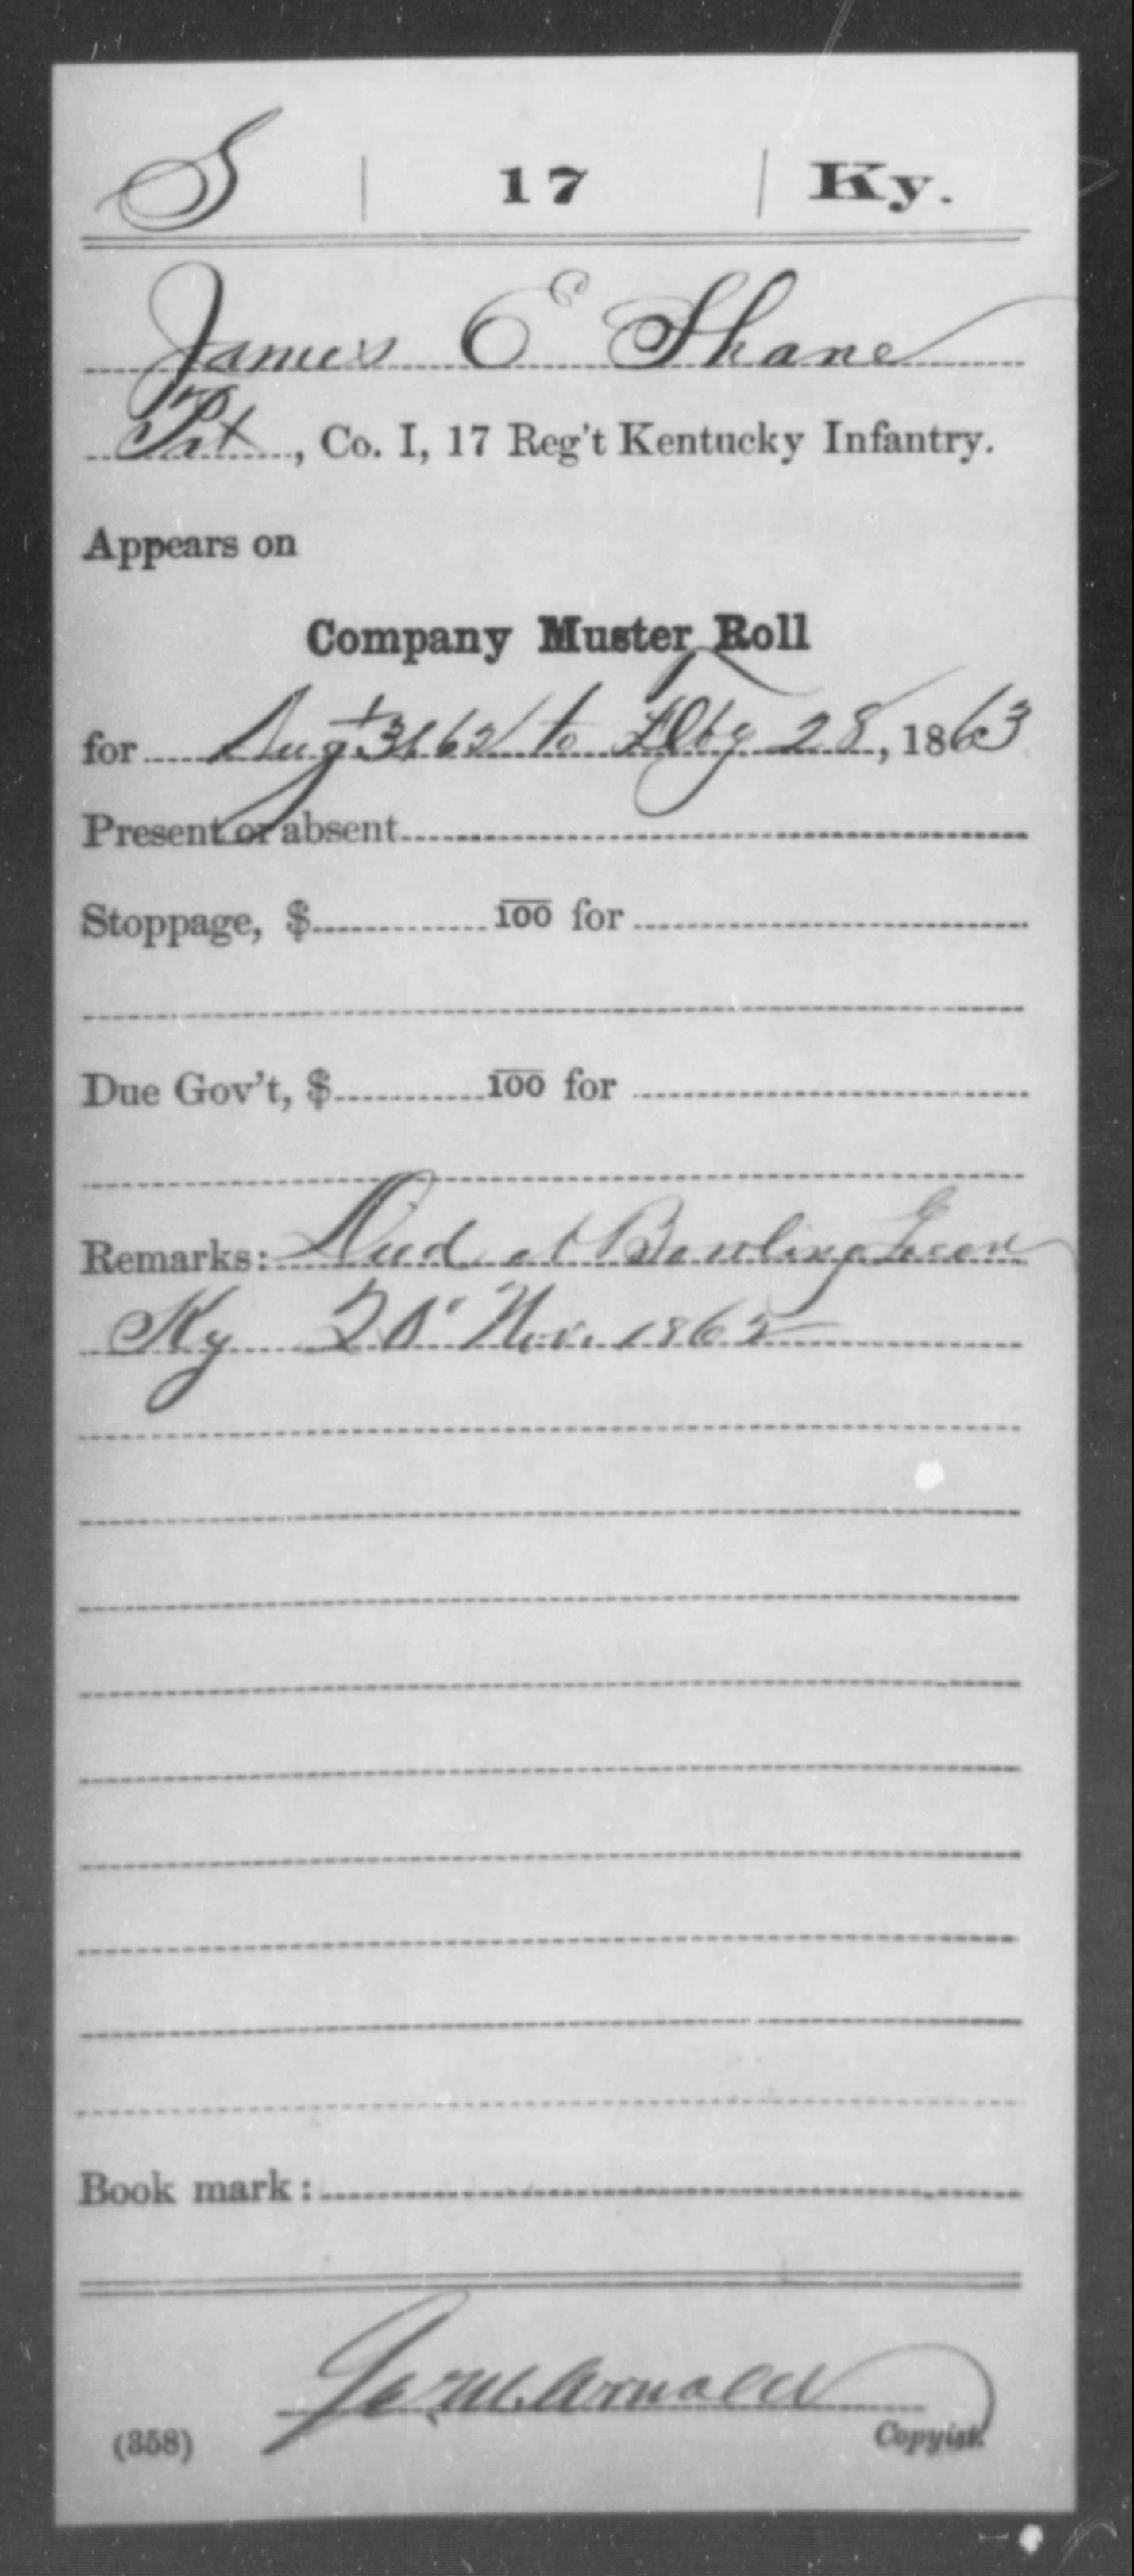 S | 17 | Ky.
James E Shane
Pvt, Co. I, 17 Reg't Kentucky Infantry.
Appears on
Company Muster Roll
for Aug 31 62 to Feby 28, 1863
Present or absent
Stoppage, $ 100 for
Due Gov't, $ 100 for
Remarks: Died at Bowling Green
Ky Nov. 1862
Book mark:
Arnold
(358) Copyist.